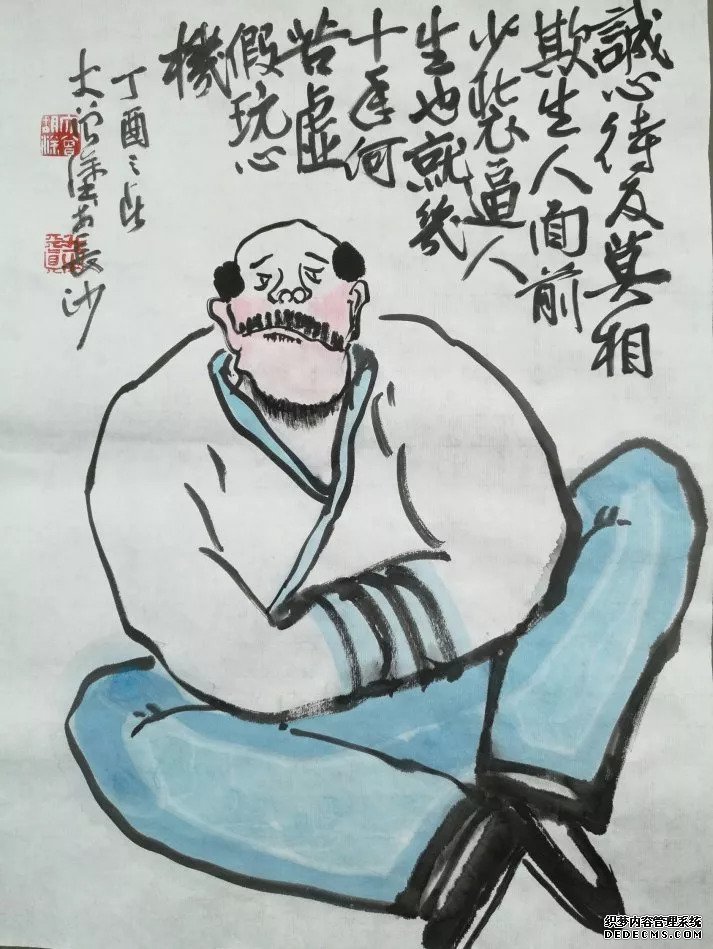 誠心待友莫相
欺生人面前
少裝逼人
生也就幾
十年何
苦虛
假玩心
機
丁酉之
大曾塗於長沙
织梦内容管理系统
DEDECMS.COM